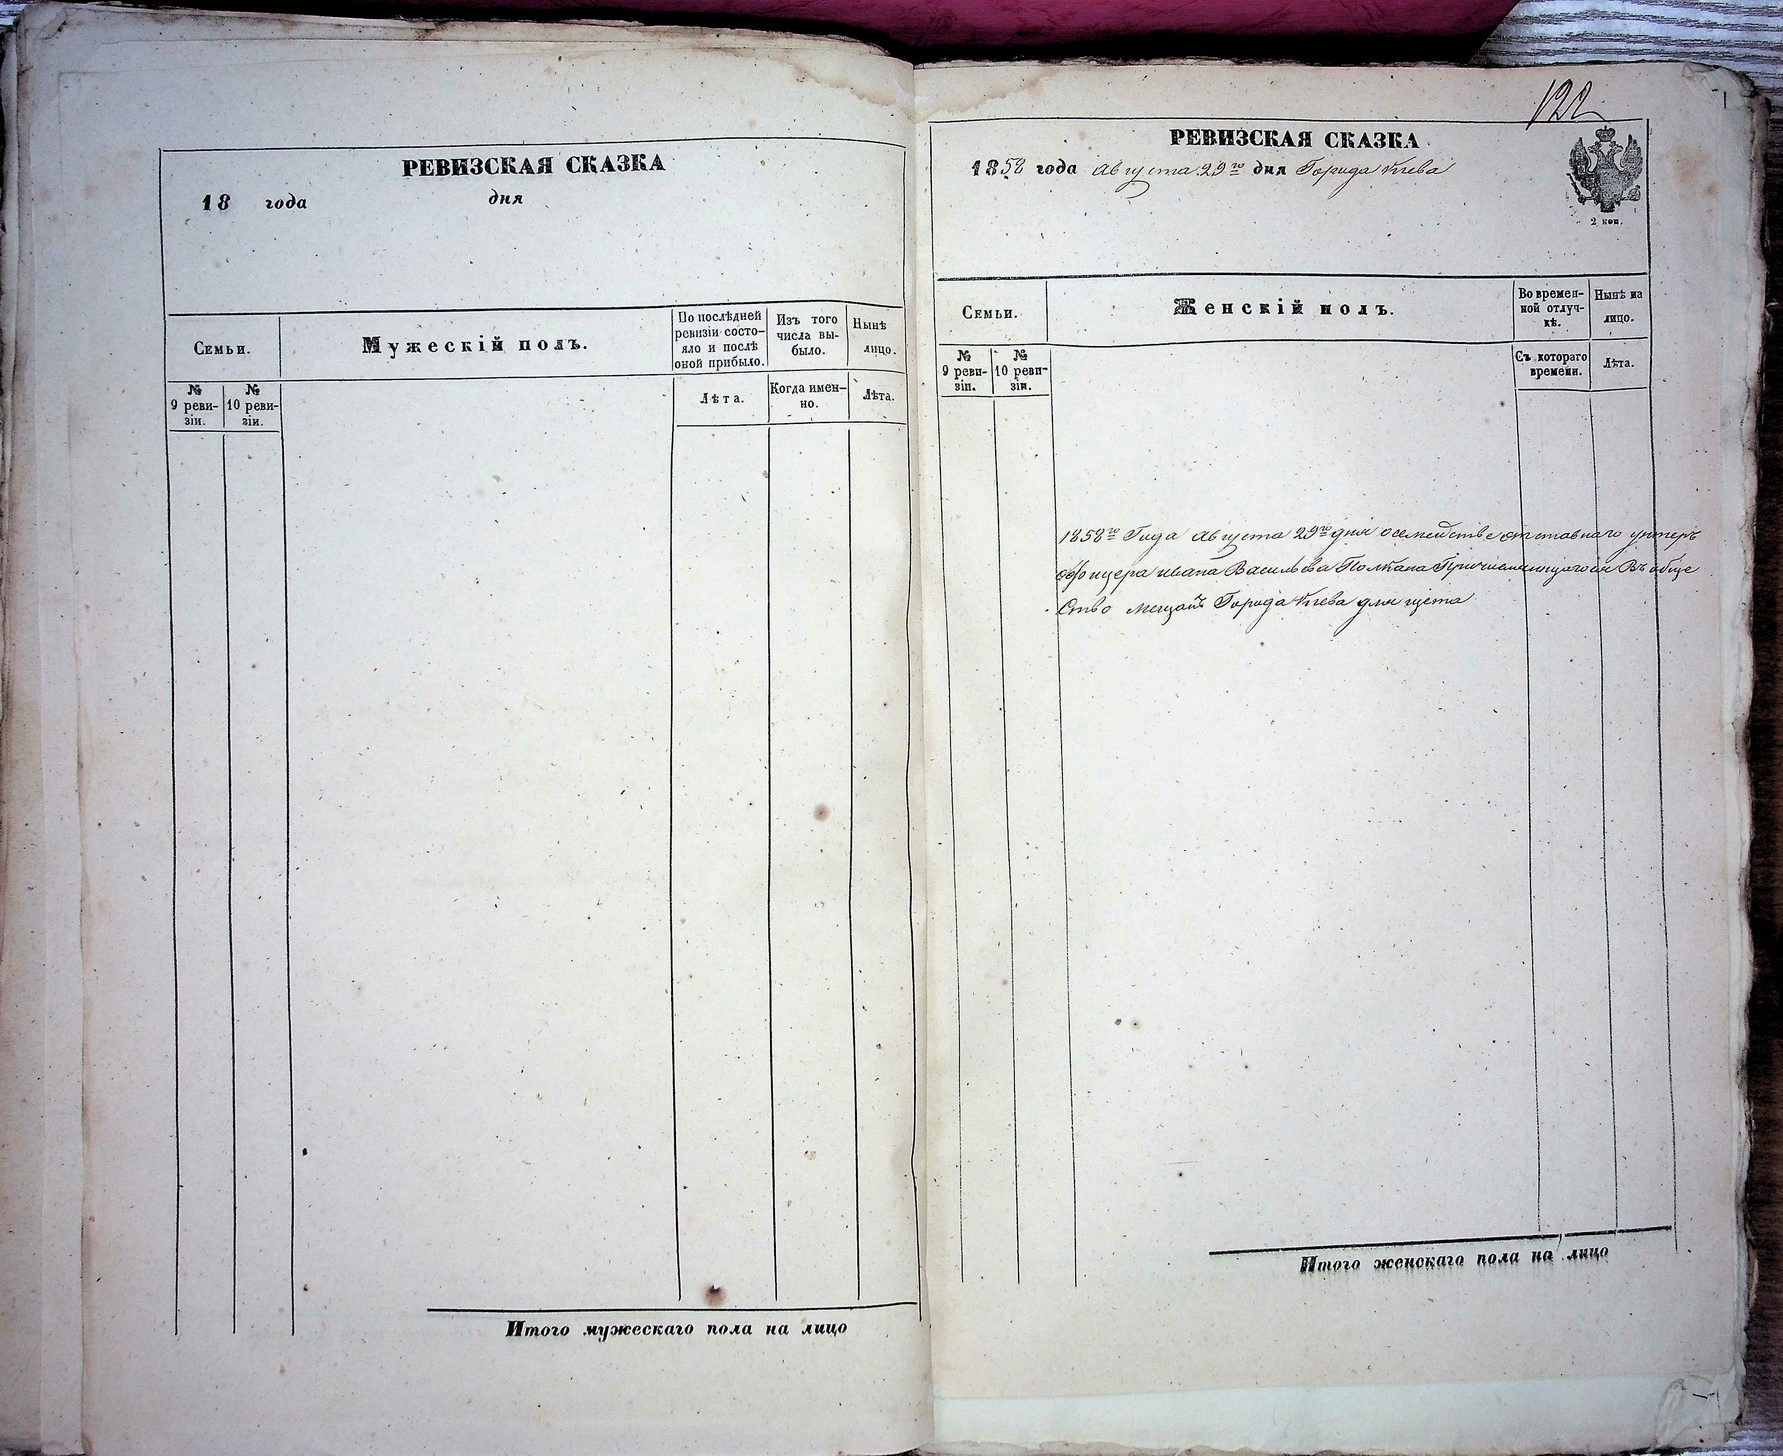 РЕВИЗСКАЯ СКАЗКА
18 года дня
Семьи.
Мужескій полъ.
По послѣдней
ревизіи состо-
яло и послѣ
оной прибыло.
Изъ того
числа вы-
было.
Нынѣ
лицо.
№
9 реви-
зіи.
№
10 реви-
зіи.
Лѣта.
Когда имен-
но.
Лѣта.
Итого мужескаго пола на лицо
122
РЕВИЗСКАЯ СКАЗКА
1858 года Августа 29го дня Города Кіева
2 коп.
Семьи.
Женскій полъ.
Во времен-
ной отлуч-
кѣ.
Нынѣ на
лицо.
№
9 реви-
зіи.
№
10 реви-
зіи.
Съ котораго
времени.
Лѣта.
1858го Года Августа 29го дня о семействе отставнаго унтеръ
офицера ивана Васильева Полкана Причисляющагося Въ обще
Ство мещанъ Города Кіева для щета
Итого женскаго пола на лицо